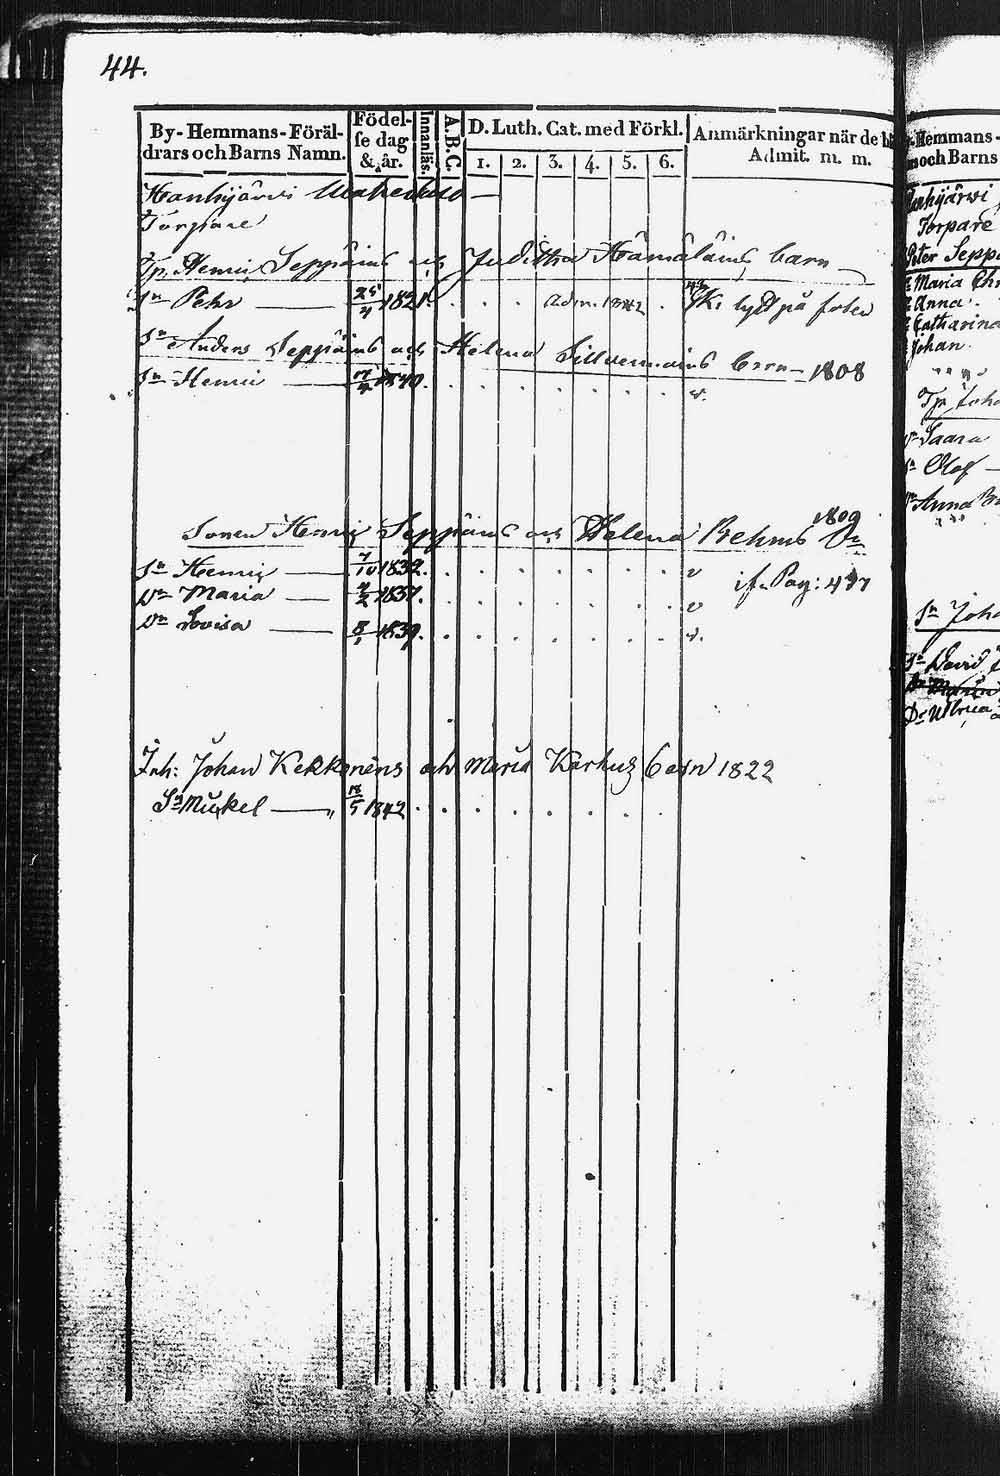 44.
By-Hemmans-Föräl-
drars och Barns Namn.
Födel-
se dag
& år.
Innanläs.
A.B.C.
D. Luth. Cat. med Förkl.
1. 2. 3. 4. 5. 6.
Anmärkningar när de b
Admit. m. m.
Hanhijärvi
Torpare
Tp. Henric Seppäins och Juditha Hämäläins barn
Sn Pehr 25/4 1821. adm. 1842 på
Sn Anders Seppäins och Helena Sillvennoins barn - 1808
Sn Henric 1840.
1809
Sonen Henric Seppäins och Helena Behms
Sn Henric 7/10 1832. v
Dn Maria 1837. v if. Pag: 437
Dn Lovisa 8/1 1839. v.
Inh: Johan Kekkonens och Maria Karhus barn 1822
Sn Mickel 18/5 1842
Hemmans-
och Barns
Torpare
Peter Seppä
Maria Chr
Anna
Catharina
Johan
Tp. Joha
Saara
Sn Olof
Anna
Sn Joha
Sn David
Dr Ulrica